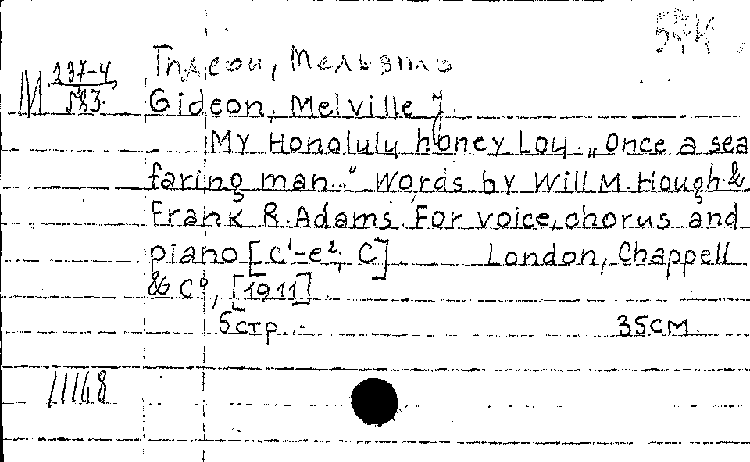 М 237-4
583
Гидеон, Мельвиль
Gideon, Melville J.
My Honolulu honey Lou. „Once a sea
faring man..." Words by Will M. Hough &
Frank R. Adams. For voice, chorus and
piano [c¹-e², C] London, Chappell
& Cº, [1911]
5 стр. - 35 см